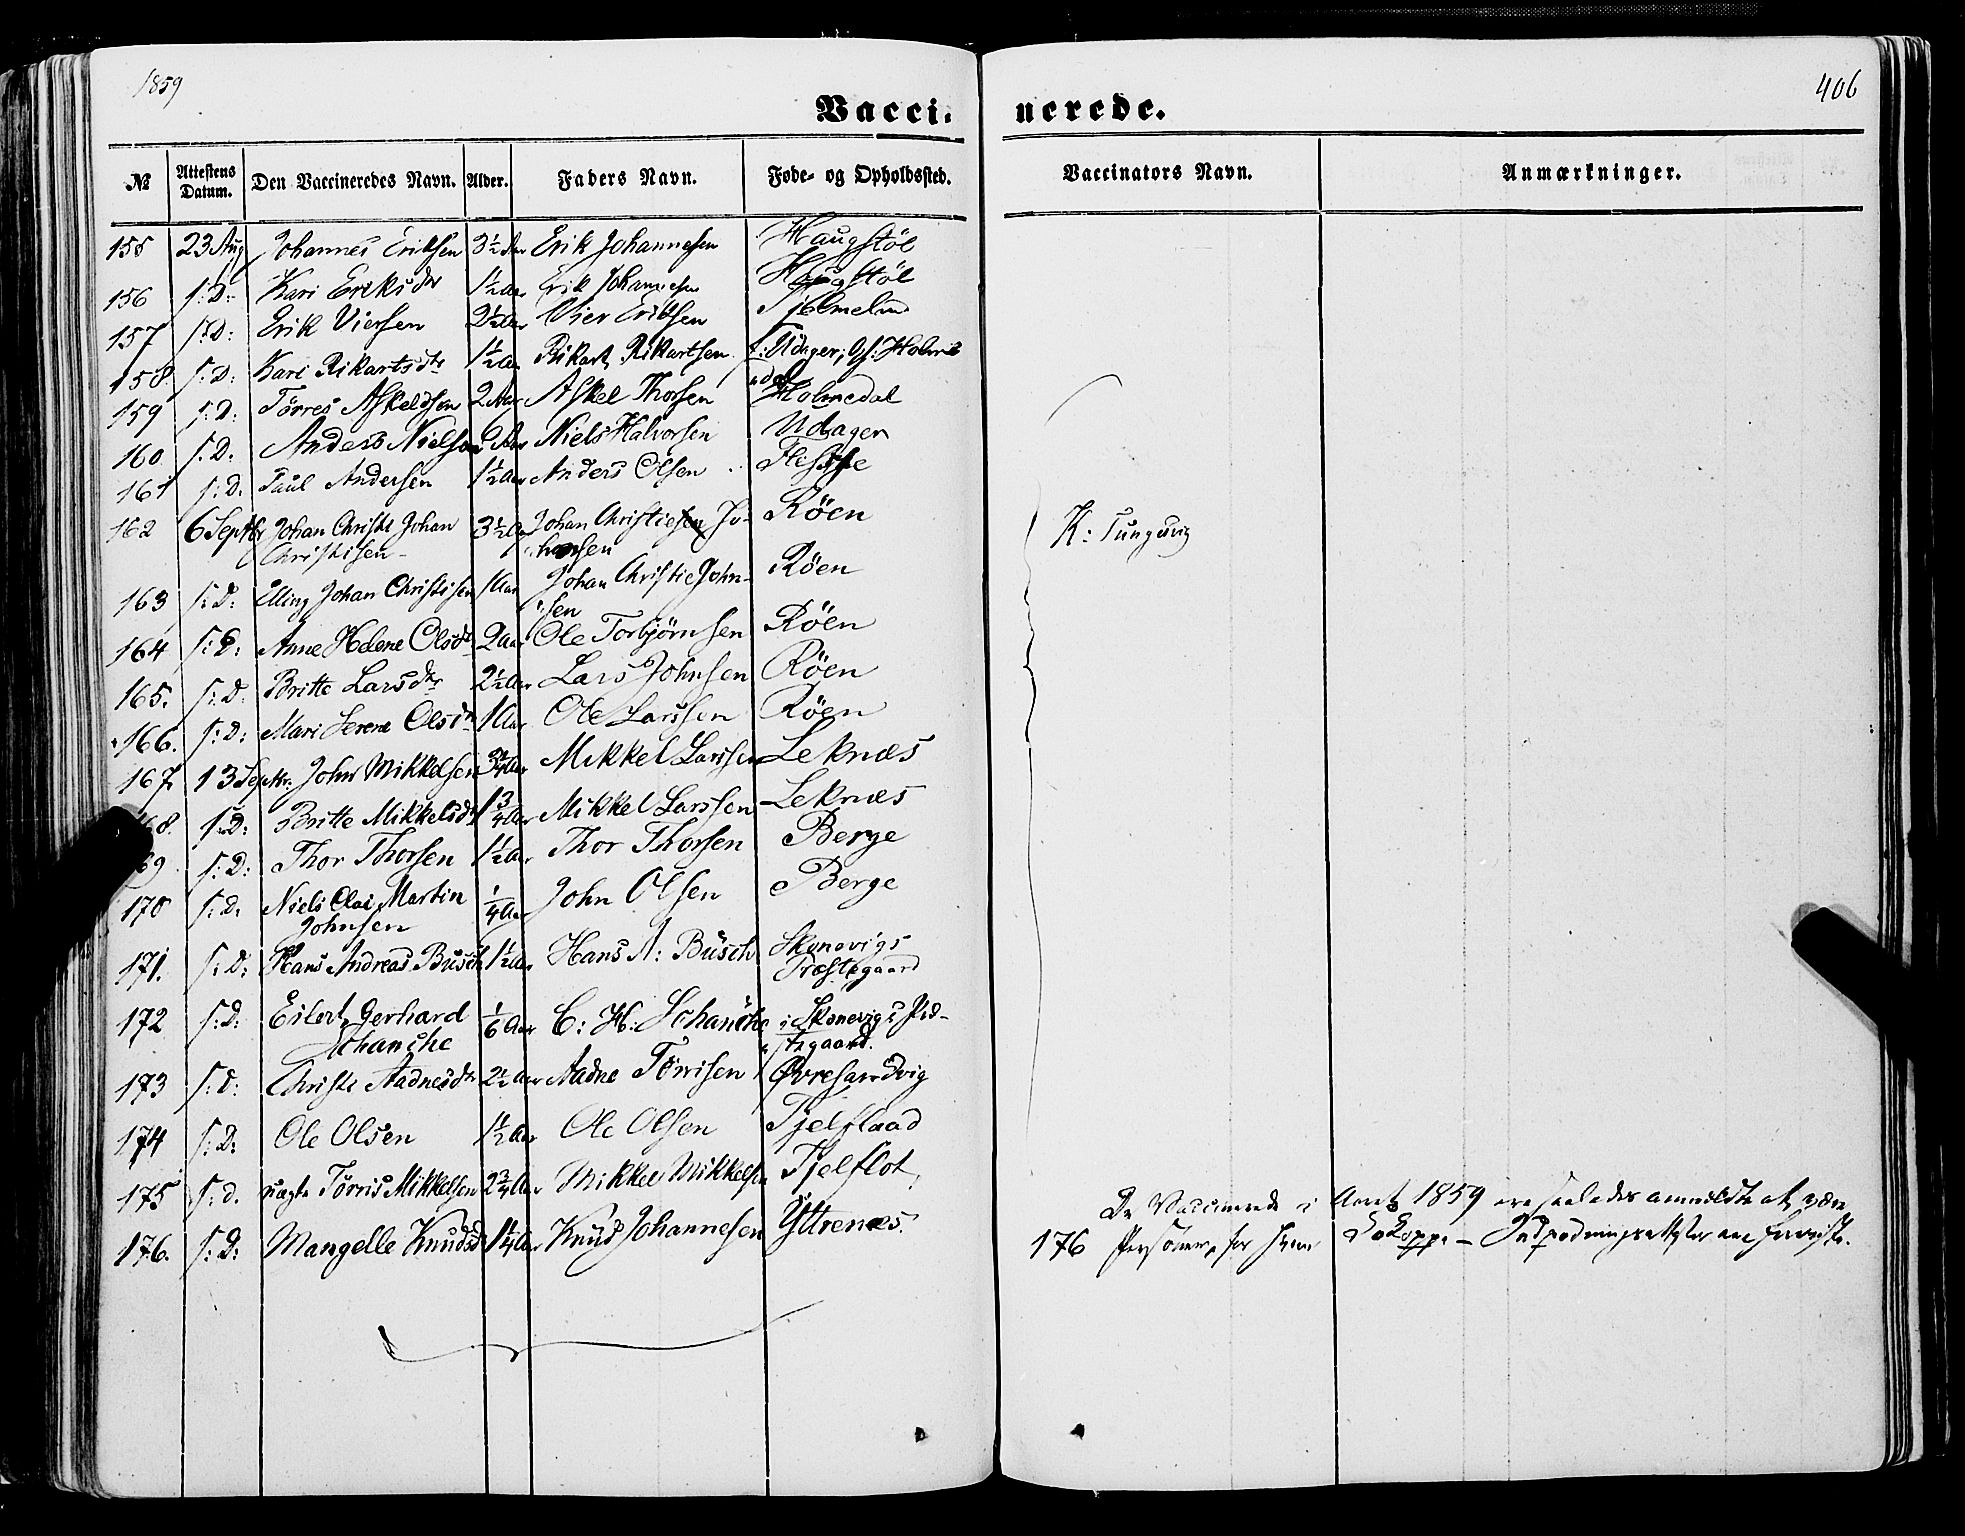 1859
406
Vacci- nerede.
№ Attestens Datum. Den Vaccineredes Navn. Alder. Faders Navn. Føde- og Opholdssted. Vaccinators Navn. Anmærkninger.
155 23 Aug Johannes Eriksen 3½ Aar Erik Johannesen Haugstöl
156 s: D: Kari Eriksdtr 1½ Aar Erik Johannesen Haugstöl
157 s: D: Erik Viersen 2½ Aar Vier Eriksen
158 s: D: Kari Rikartsdtr 1½ Aar Rikart Rikartsen f: Udager; O
159 s: D: Törres Askeldsen 2 Aar Askel Thorsen Holmedal
160 s: D: Anders Nielsen Aar Niels Halvorsen Udager
161 s: D: Paul Andersen 1½ Aar Anders Olsen
162 6 Septbr Johan Christi Johan 3½ Aar Johan Christiesen Jo- Röen K: Tungesvig
Christisen hansen
163 s: D: Elling Johan Christisen 1 Aar Johan Christie John- Röen
sen
164 s: D: Anne Helene Olsdtr 2 Aar Ole Torbjörnsen Röen
165. s: D. Britte Larsdtr 2½ Aar Lars Johnsen Röen
166. s: D: Mari Serene Olsdtr 1 Aar Ole Larssen Röen
167. 13 Septbr. John Mikkelsen Aar Mikkel Larssen Leknæs
68. s: D: Britte Mikkelsdtr 1¾ Aar Mikkel Larssen Leknæs
69 s: D: Thor Thorsen 1½ Aar Thor Thorsen Berge
170 s: D. Niels Olai Martin ¼ Aar John Olsen Berge
Johnsen
171. s: D: Hans Andreas Busch 1½ Aar Hans A: Busch Skonevigs
Præstegaard
172 s: D: Eilert Gerhard 1/6 Aar C: H: Schanche Skonevigs Præ-
Schanche stegaard.
173 s: D: Christi Aadnesdtr 2½ Aar Aadne Törrisen Øvresandvig
174 s: D: Ole Olsen 1½ Aar Ole Olsen Tjelflaad
175 s: D. uægte Törris Mikkelsen 2¾ Aar Mikkel Mikkelsen Tjelflot
176. s: D: Mangelle Knudsd 1¼ Aar Knud Johannesen Yttrenæs.
De Vaccinerede i Aaret 1859 ere saaledes anmeldte at være
176 Personer, for hvem Indpodningsattester ere